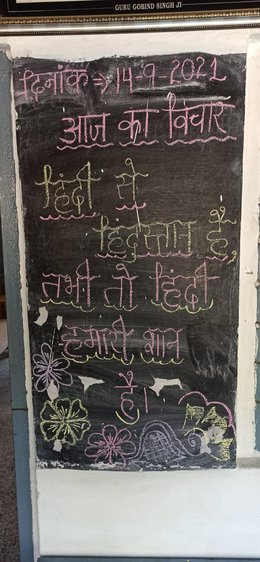 GURU GOBIND SINGH JI
दिनांक → 14-9-2021
आज का विचार
हिंदी से
हिंदुस्तान है,
तभी तो हिंदी
हमारी शान
है।